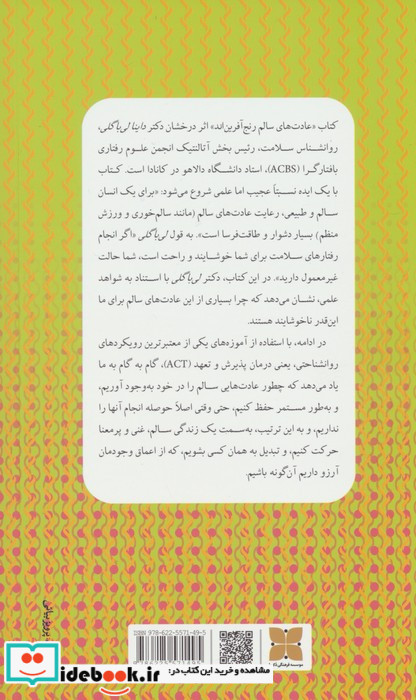 کتاب «عادت‌های سالم رنج‌آفرین‌اند» اثر درخشان دکتر داینا لی‌باگلی،
روانشناس سلامت، رئیس بخش آتلانتیک انجمن علوم رفتاری
بافتارگرا (ACBS)، استاد دانشگاه دالاهو در کانادا است. کتاب
با یک ایده نسبتاً عجیب اما علمی شروع می‌شود: «برای یک انسان
سالم و طبیعی، رعایت عادت‌های سالم (مانند سالم‌خوری و ورزش
منظم) بسیار دشوار و طاقت‌فرسا است». به قول لی‌باگلی «اگر انجام
رفتارهای سلامت برای شما خوشایند و راحت است، شما حالت
غیرمعمول دارید». در این کتاب، دکتر لی‌باگلی با استناد به شواهد
علمی، نشان می‌دهد که چرا بسیاری از این عادت‌های سالم برای ما
این‌قدر ناخوشایند هستند.
در ادامه، با استفاده از آموزه‌های یکی از معتبرترین رویکردهای
روانشناختی، یعنی درمان پذیرش و تعهد (ACT)، گام به گام به ما
یاد می‌دهد که چطور عادت‌هایی سالم را در خود به‌وجود آوریم،
و به‌طور مستمر حفظ کنیم، حتی وقتی اصلاً حوصله انجام آنها را
نداریم، و به این ترتیب، به‌سمت یک زندگی سالم، غنی و پرمعنا
حرکت کنیم، و تبدیل به همان کسی بشویم، که از اعماق وجودمان
آرزو داریم آن‌گونه باشیم.
پرویز بیانی
ISBN 978-622-5571-49-5
مشاهده و خرید این کتاب در:
idebook.ir